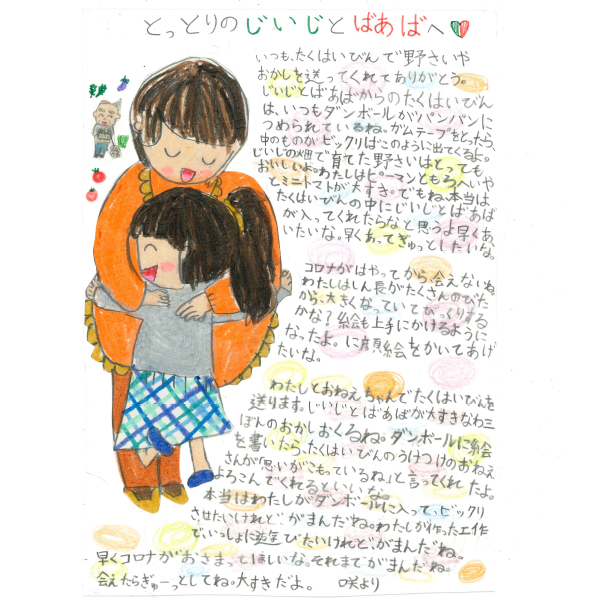 とっとりのじいじとばあばへ
いつも、たくはいびんで野さいや
おかしを送ってくれてありがとう。
じいじとばあばからのたくはいびん
は、いつもダンボールがパンパンに
つめられているね。ガムテープをとったら、
中のものがビックリばこのように出てくるよ。
じいじの畑で育てた野さいはとっても
おいしいよ。わたしはピーマンともろへいや
とミニトマトが大すき。でもね、本当は
たくはいびんの中にじいじとばあば
が入ってくれたらなと思うよ早くあ
いたいな。早くあってぎゅっとしたいな。
コロナがはやってから、会えないね
わたしはしん長がたくさんのびた
から、大きくなっていてびっくりする
かな？絵も上手にかけるように
なったよ。に顔絵をかいてあげ
たいな。
わたしとおねえちゃんでたくはいびんを
送ります。じいじとばあばが大すきなわ三
ぼんのおかしおくるね。ダンボールに絵
を書いたら、たくはいびんのうけつけのおねえ
さんが「思いがこもっているね」と言ってくれたよ。
よろこんでくれるといいな。
本当はわたしがダンボールに入って、ビックリ
させたいけれど、がまんだね。わたしが作った工作
で、いっしょに遊びたいけれど、がまんだね。
早くコロナがおさまってほしいな。それまでがまんだね。
会えたらぎゅーっとしてね。大すきだよ。 咲より